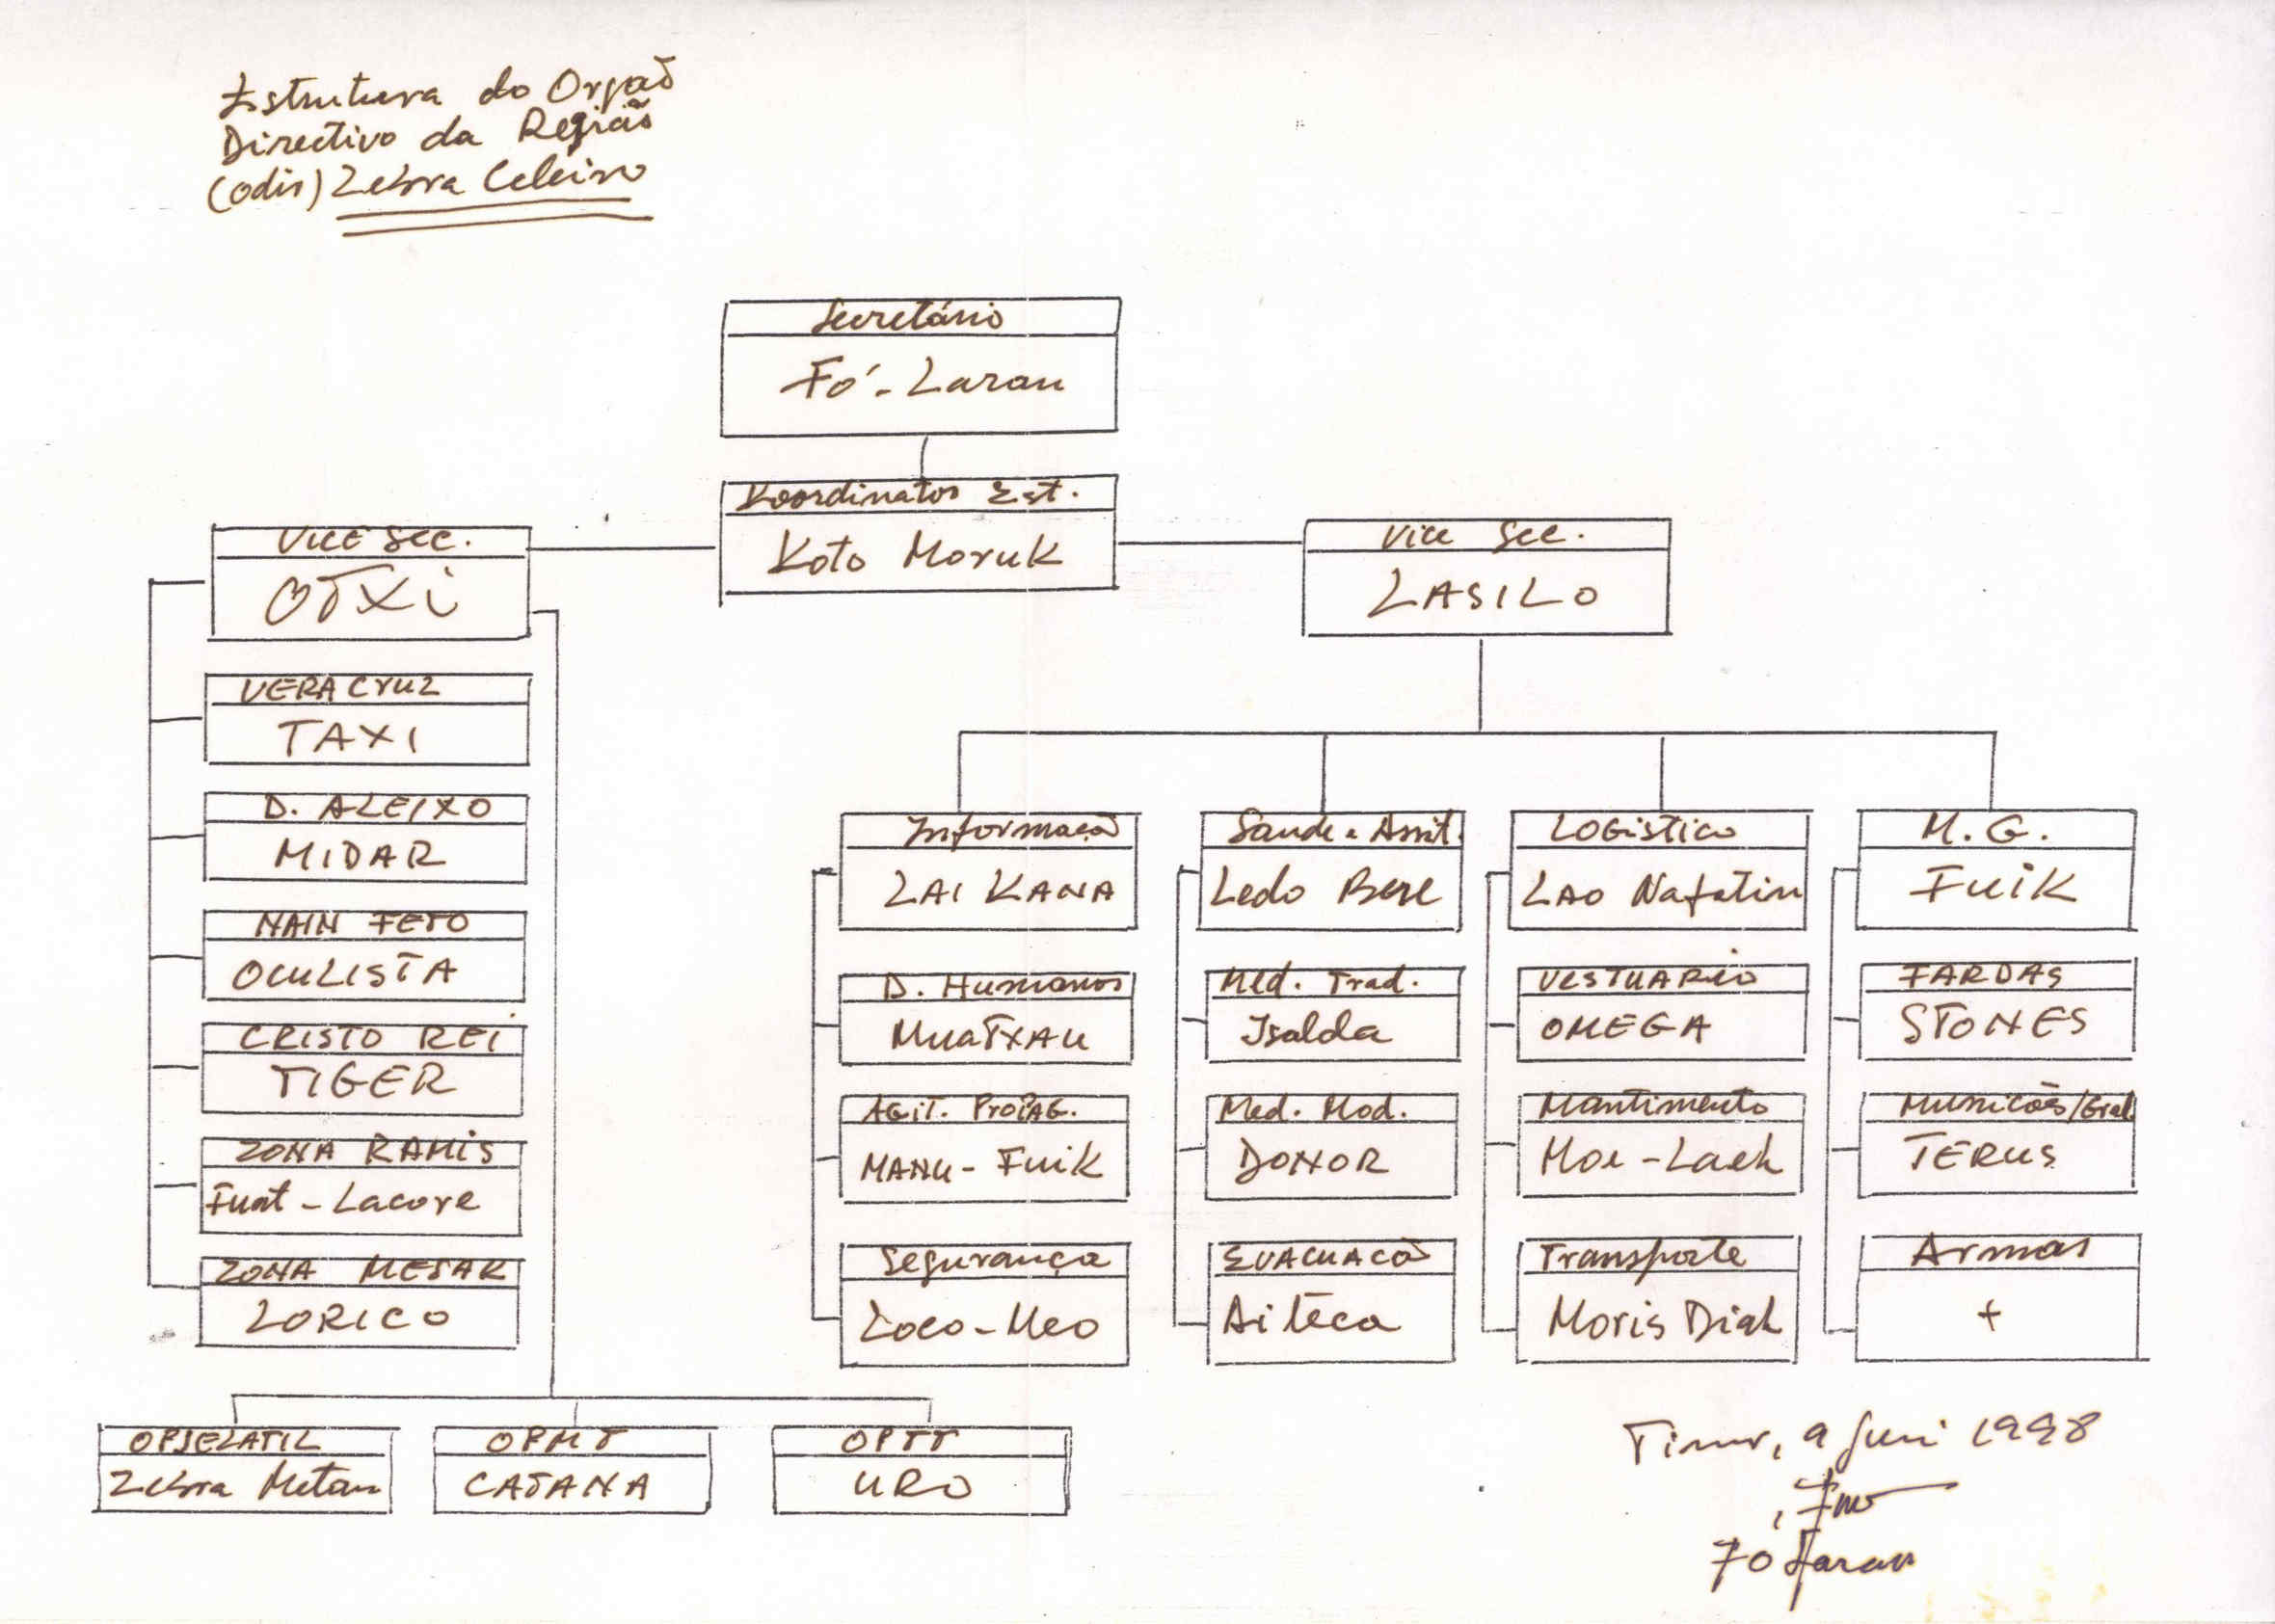 Estrutura do Orgaõ
Directivo da Região
(odir) Zebra Celeiro
Secretário
Fó-Laran
Koordinator Est.
Koto Moruk
Vice Sec.
OTXi
Vice Sec.
LASILO
VERA Cruz
TAXI
D. ALEIXO
MIDAR
NAIN FETO
OCULISTA
CRISTO REi
TIGER
ZONA RAMIS
Fuat-Lacore
ZONA MESAK
LORICO
OPJELATIL
Zebra Metan
OPMT
CATANA
OPTT
URO
Informacaõ
LAI KANA
D. Humanos
MuaTXAU
AGiT. PROPAG.
MANU-FuiK
Segurança
Loco-Meo
Saude e Assit.
Ledo Bere
Med. Trad.
Isalda
Med. Mod.
DONOR
EVACUACÃO
Aiteca
LOGistica
LAO Nafatin
VESTUARiO
OMEGA
Mantimento
Moe-Laek
Transporte
Moris Diak
M. G.
FuiK
FARDAS
STONES
Municões/Gral
TERUS
Armas
+
Timor, 9 Juni 1998
Fó Laran